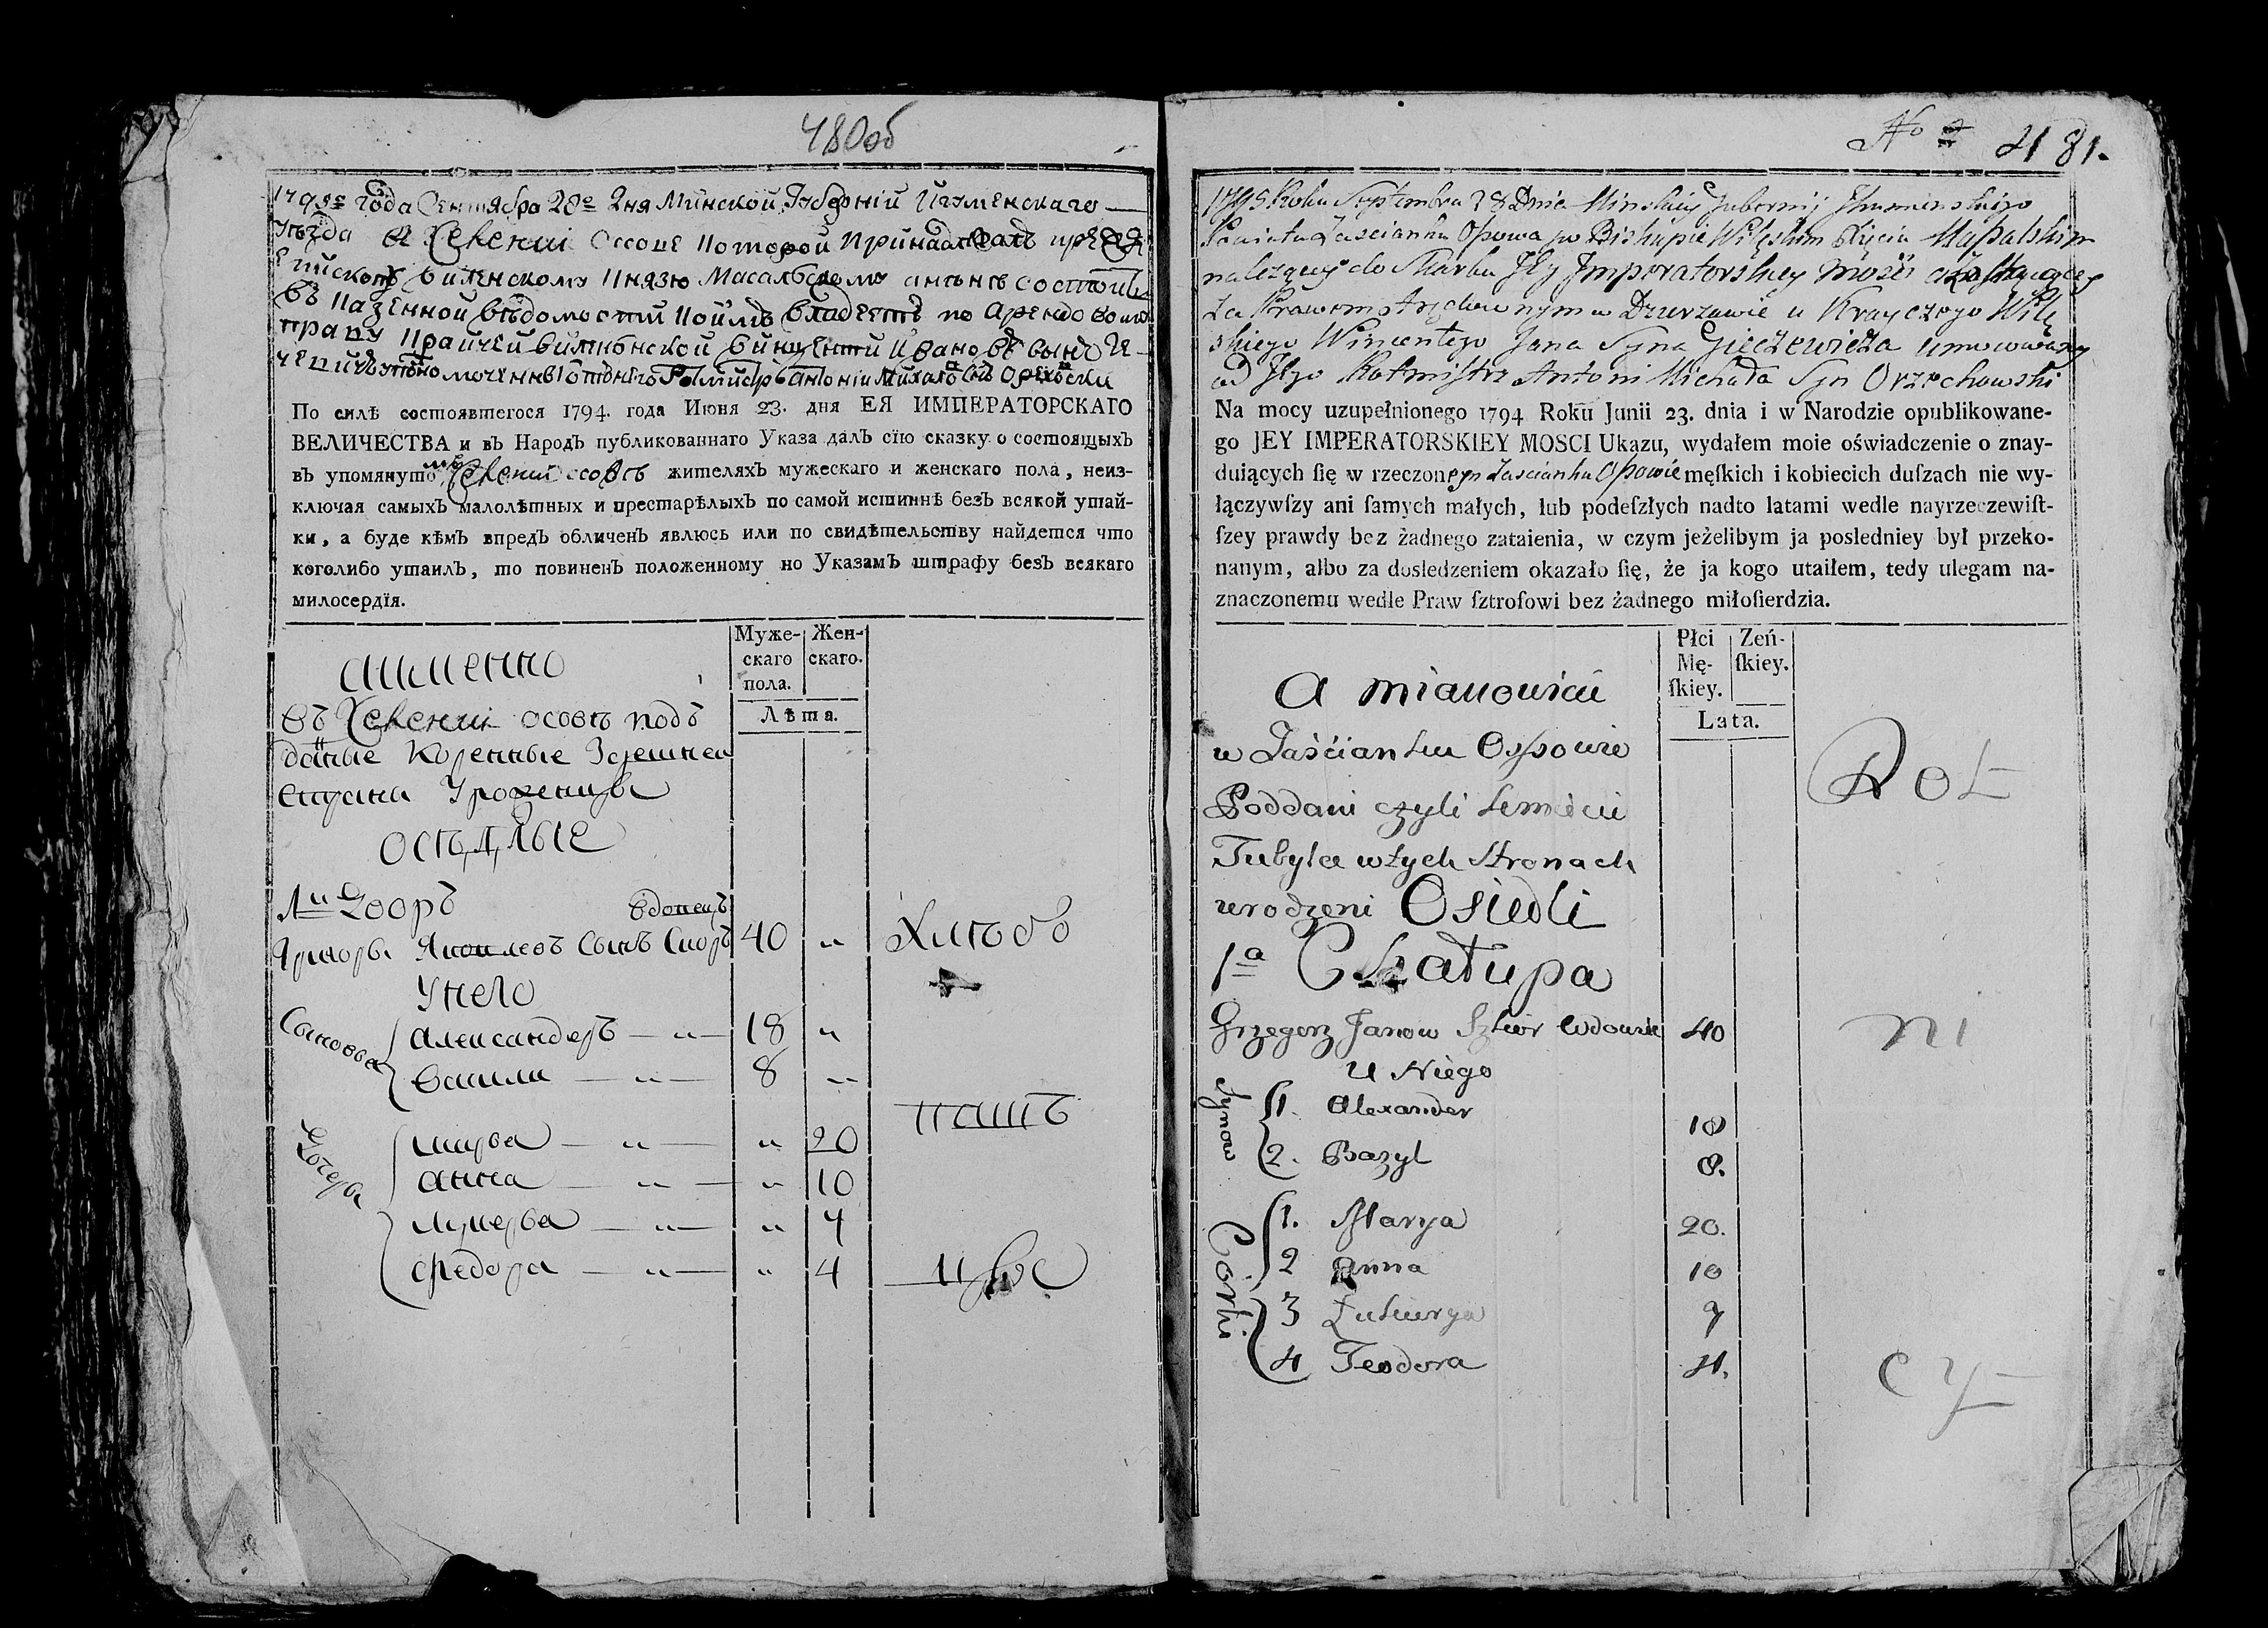 480об
1795го года Сентября 28го дня Минской Губерніи Игуменскаго
уезда
Епископу Виленскому Князю Масальскому а нынѣ состои
въ Казенной вѣдомостіи коимъ владеетъ по Арендовому
праву Крайчей Виленской Винцентіи Ивановъ сынъ
Ротмистръ Антоніи Михала Снъ Орехъвски
По силѣ состоявшегося 1794. года Июня 23. дня ЕЯ ИМПЕРАТОРСКАГО
ВЕЛИЧЕСТВА и въ Народъ публикованнаго Указа далъ сїю сказку о состоящыхъ
въ упомянутомъ жителяхъ мужескаго и женскаго пола, неиз-
ключая самыхъ малолѣтныхъ и престарѣлыхъ по самой истиннѣ безъ всякой утай-
ки, а буде кѣмъ впредъ обличенъ явлюсь или по свидѣтельству найдется что
коголибо утаилъ, то повиненъ положенному по Указамъ штрафу безъ всякаго
милосердїя.
Муже-
скаго
пола.
Жен-
скаго.
Лѣта.
аимєнно
въ осовѣ подъ
даные коренные Здешнеи
Страны Уроженцы
осѣдлые
1и дворъ вдовецъ
Григоры Яковлевъ Сынъ Скоръ 40 "
У него
Сыновья
Александеръ — " — 18 "
Васили — " — 8 "
Дочеры
Марья — " — " 20
Анна — " — " 10
Лукерья — " — " 7
Федора — " — " 4
No 2 481.
1795 Roku Septembra 28 Dnia Minskiey Gubernij Ihumenskiego
Powiatu Zascianku Osowa po Biskupie Wileńskim Xięciu Massalskim
należący do Skarbu Jey Imperatorskiey Mości a zostaiącey
za Prawem Arędownym w Dzierżawie u Krayczego Wile
skiego Wincentego Jana Syna Gieczewicza umocowany
od Jego Rotmistrz Antoni Michała Syn Orzechowski
Na mocy uzupełnionego 1794 Roku Junii 23. dnia i w Narodzie opublikowane-
go JEY IMPERATORSKIEY MOSCI Ukazu, wydałem moie oświadczenie o znay-
duiących ſię w rzeczonym Zascianku Osowie męſkich i kobiecich duſzach nie wy-
łączywſzy ani ſamych małych, lub podeſzłych nadto latami wedle nayrzeczewiſt-
ſzey prawdy bez żadnego zataienia, w czym jeżelibym ja posledniey był przeko-
nanym, albo za dosledzeniem okazało ſię, że ja kogo utaiłem, tedy ulegam na-
znaczonemu wedle Praw ſztrofowi bez żadnego miłoſierdzia.
Płci
Mę-
ſkiey.
Zeń-
ſkiey.
Lata.
A mianowicie
w Zaściankų Ossowie
Poddani czyli kmiecie
Tubylce w tych Stronach
urodzeni Osiedli
1a Chałupa
Grzegorz Janow Szkor Wdowiec 40
U Niego
Synow
1. Alexander 18
2. Bazyl 8.
Corki
1. Marya 20.
2 Anna 10
3 Łukierya 7
4 Teodora 4.